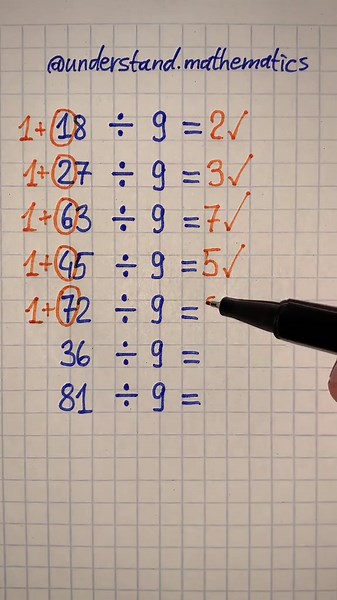 @understand.mathematics
1+18 ÷ 9 = 2✓
1+27 ÷ 9 = 3✓
1+63 ÷ 9 = 7✓
1+45 ÷ 9 = 5✓
1+72 ÷ 9 =
36 ÷ 9 =
81 ÷ 9 =